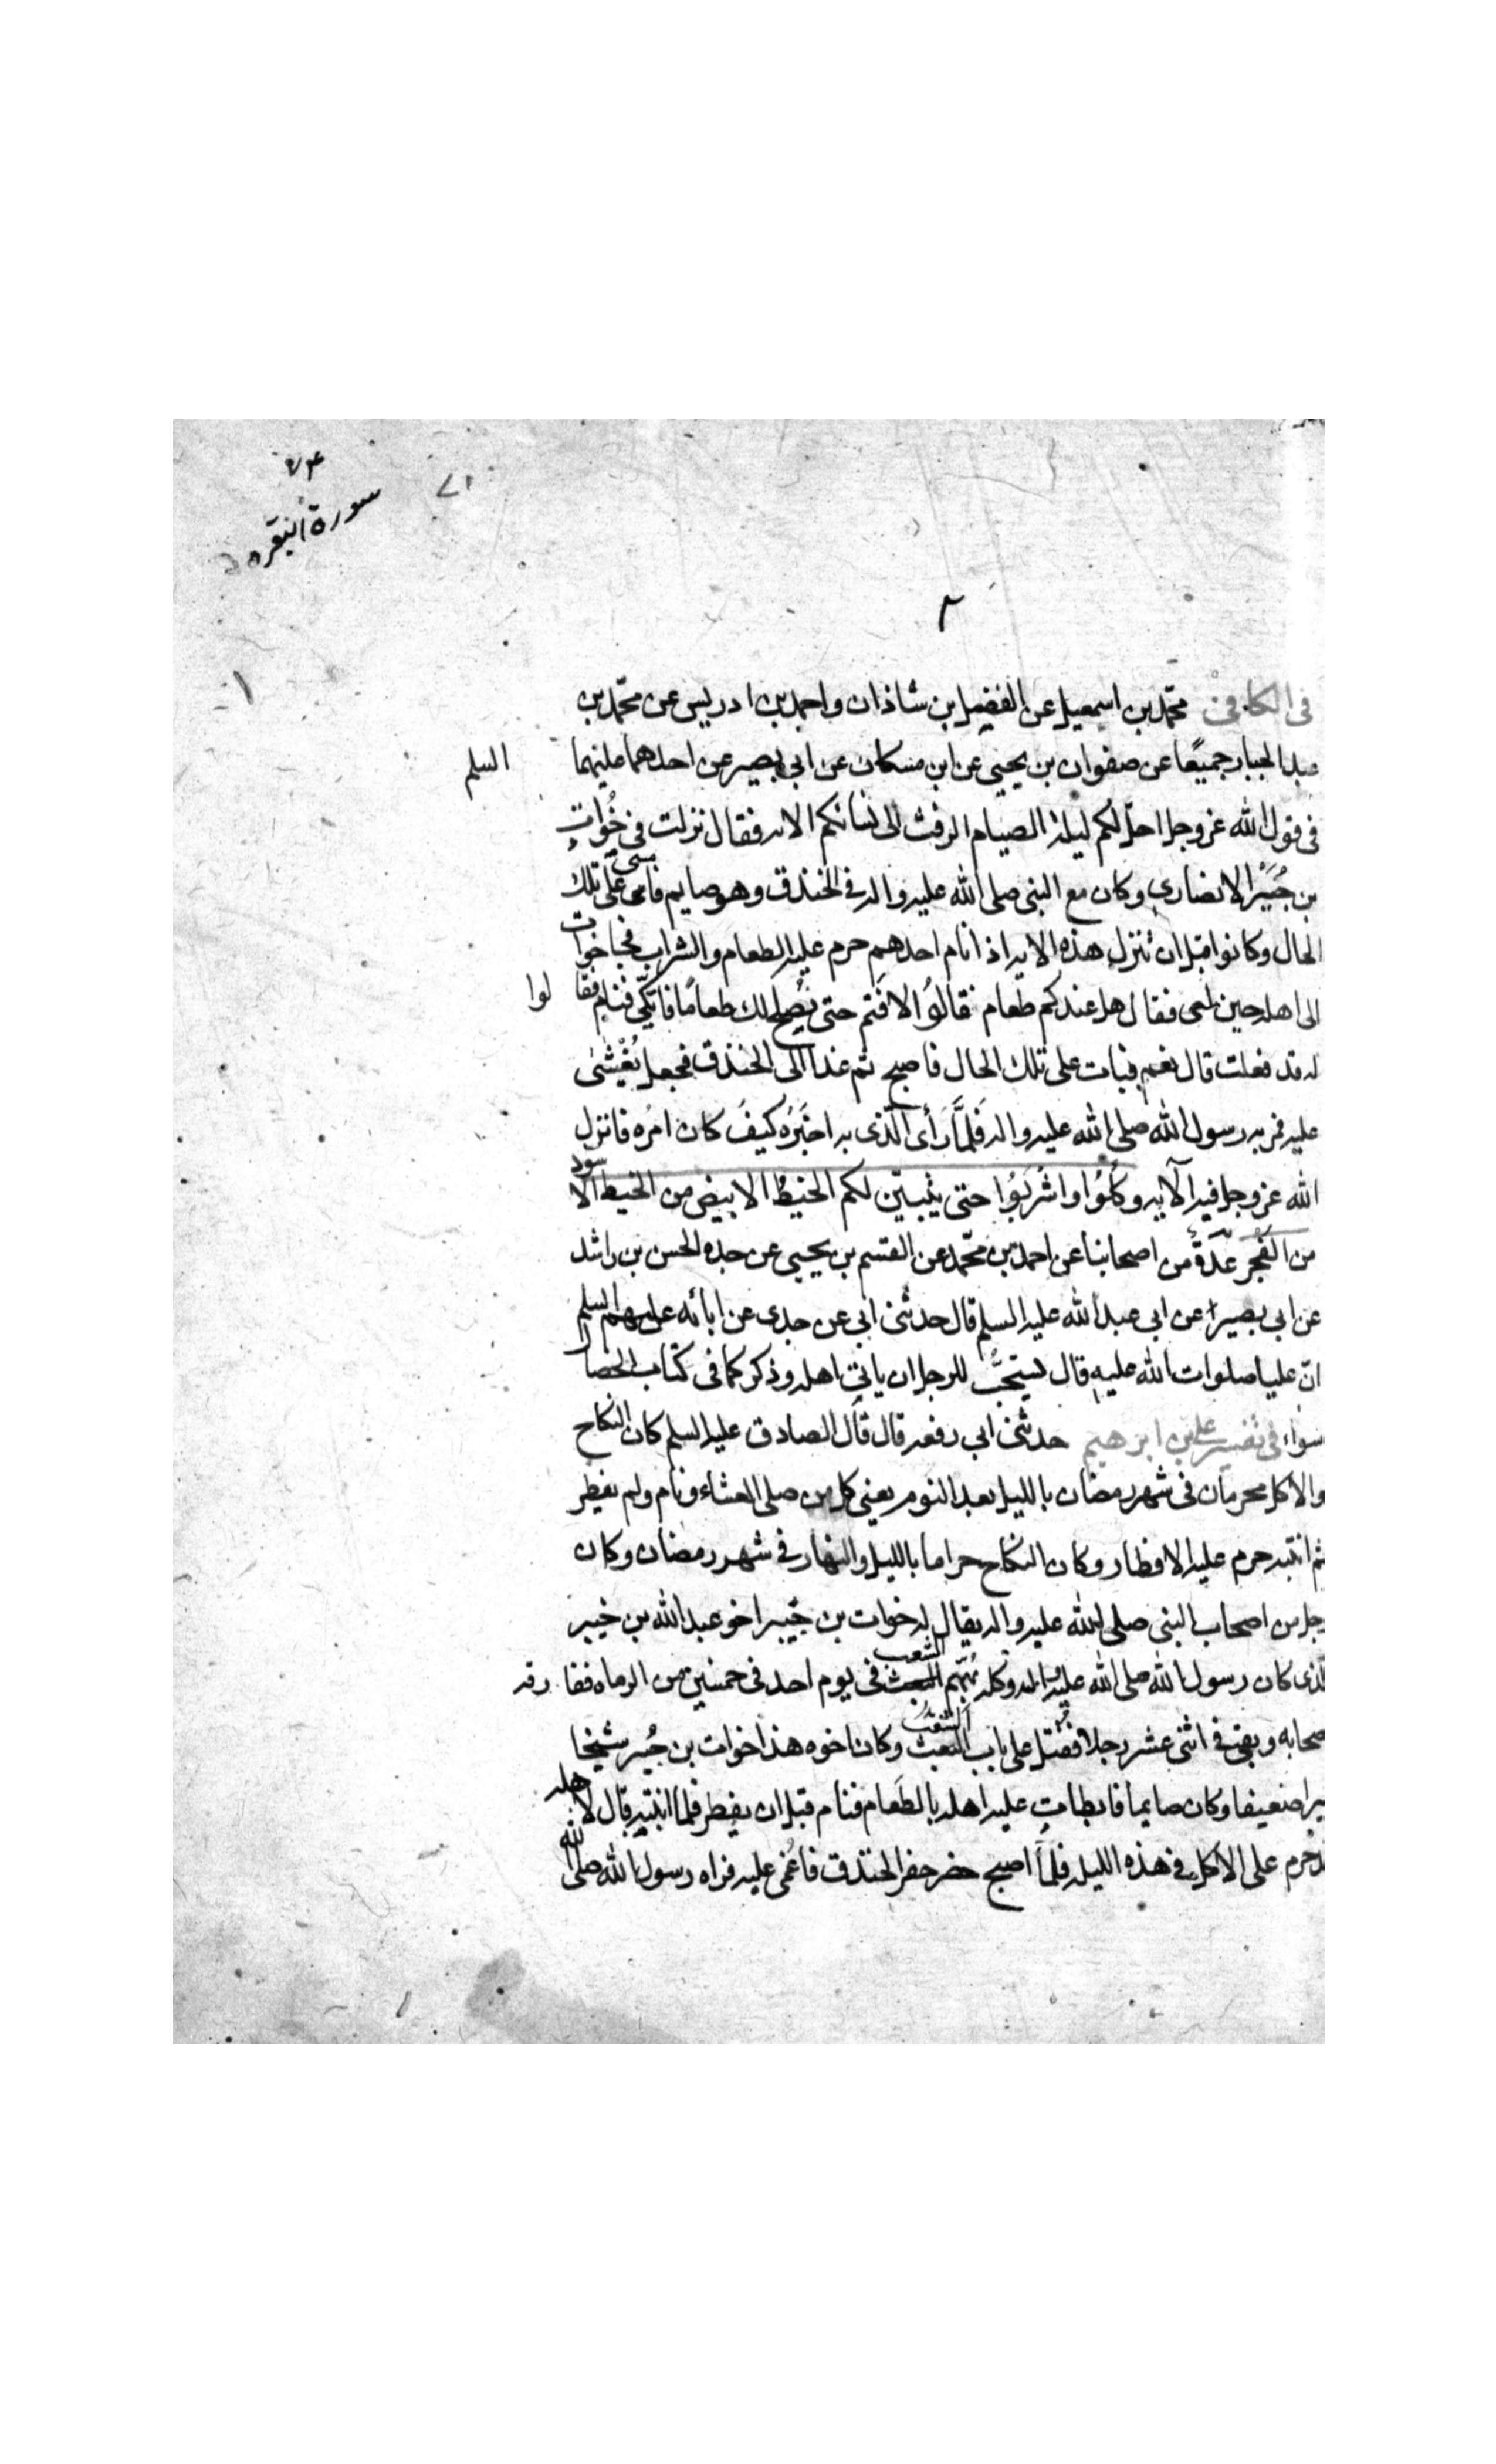 سورة البقره
في الكافي محمّد بن اسمعيل عن الفضيل بن شاذان واحمد بن ادريس عن محمّد بن
عبد الجبار جميعًا عن صفوان بن يحيى عن ابن مسكان عن ابي بصير عن احدهما عليهما السلم
في قول الله عز وجل احلّ لكم ليلة الصيام الرفث الى نسائكم الايه فقال نزلت في خُوات
بن جُبَيْر الانصاري وكان مع النبي صلى الله عليه واله في الخندق وهو صايم فامسى على تلك
الحال وكانوا قبل ان تنزل هذه الايه اذا نام احدهم حرم عليه الطعام والشراب فجا خوات
الى اهله حين امسى فقال هل عندكم طعام فقالُوا لا فتم حتى نُصلح لك طعامًا فاتكّى فنام فقالوا
له قد فعلت قال نعم فبات على تلك الحال فاصبح ثم غدا الى الخندق فجعل يُغْشٰى
عليه فمر به رسول الله صلى الله عليه واله فَلمَّا رَأى الّذى به اخبَرَه كيفَ كان امرُه فانزل
الله عز وجل فيه الآيه وكُلُوُا واشْرَبُوُا حتى يتبيّن لكم الخيطُ الابيض من الخيط الاسود
من الفجر عدّةٌ من اصحابنا عن احمد بن محمّد عن القسم بن يحيى عن جده الحسن بن راشد
عن ابي بصير عن ابي عبد الله عليه السلم قال حدثنى ابى عن جدى عن ابائه عليهم السلم
انّ عليا صلوات الله عليه قال يستحبُّ للرجل ان ياتي اهله وذكر كما في كتاب الخصال
سواء في تفسير علي بن ابرهيم حدثنى ابي رفعه قال قال الصادق عليه السلم كان النكاح
والاكل محرمان في شهر رمضان بالليل بعد النوم يعني كل من صلى العشاء ونام ولم يفطر
ثم انتبه حرم عليه الافطار وكان النكاح حراما بالليل والنهار في شهر رمضان وكان
رجل من اصحاب النبي صلى الله عليه واله يقال له خوات بن جُبير اخو عبد الله بن جبير
الذى كان رسول الله صلى الله عليه واله وكله بفم الشعب في يوم احد في خمسين من الرماه ففارقه
اصحابه وبقى في اثنى عشر رجلا فقُتل على باب الشعب وكان اخوه هذا خوات بن جُبير شيخا
كبيرا ضعيفا وكان صايما فابطات عليه اهله بالطعام فنام قبل ان يفطر فلما انتبه قال لاهله
قد حرم على الاكل في هذه الليله فلمّا اصبح حضر حفر الخندق فاُغمى عليه فراه رسول الله صلى الله